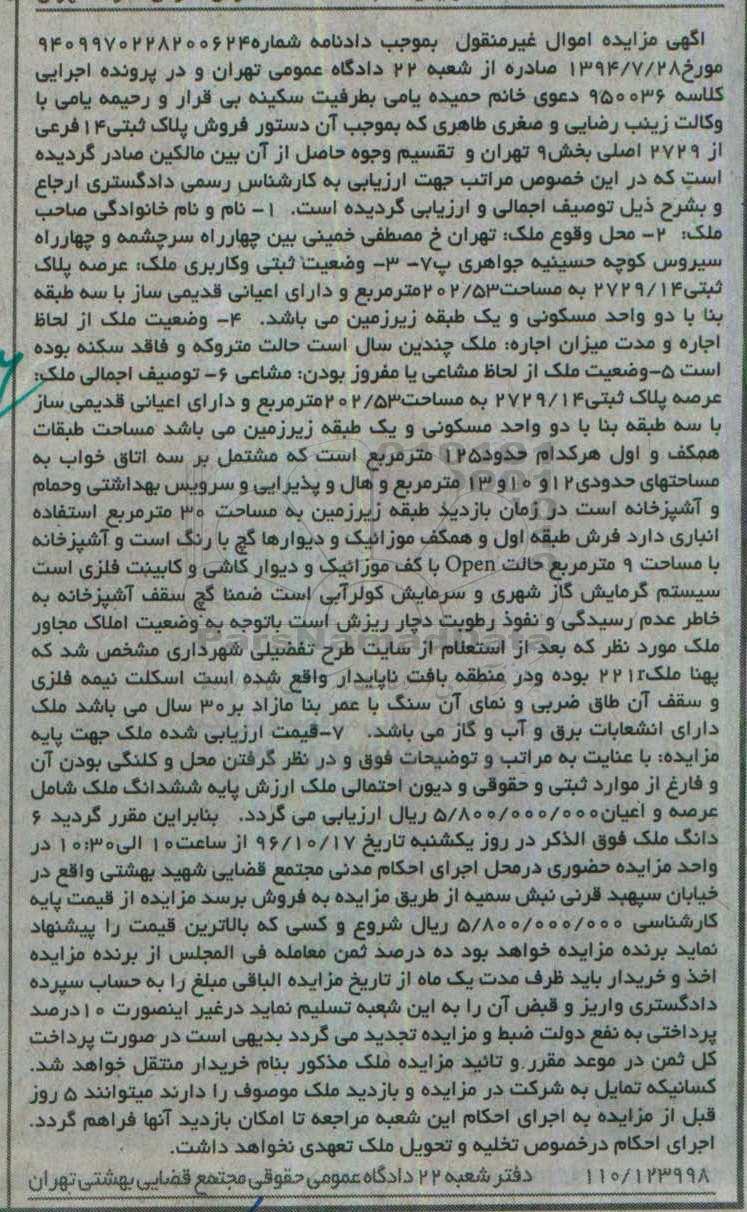 آگهی مزایده اموال غیرمنقول بموجب دادنامه شماره۹۴۰۹۹۷۰۲۲۸۲۰۰۶۲۴
مورخ۱۳۹۴/۷/۲۸ صادره از شعبه ۲۲ دادگاه عمومی تهران و در پرونده اجرایی
کلاسه ۹۵۰۰۳۶ دعوی خانم حمیده یامی بطرفیت سکینه بی قرار و رحیمه یامی با
وکالت زینب رضایی و صغری طاهری که بموجب آن دستور فروش پلاک ثبتی۱۴فرعی
از ۲۷۲۹ اصلی بخش۹ تهران و تقسیم وجوه حاصل از آن بین مالکین صادر گردیده
است که در این خصوص مراتب جهت ارزیابی به کارشناس رسمی دادگستری ارجاع
و بشرح ذیل توصیف اجمالی و ارزیابی گردیده است. ۱- نام و نام خانوادگی صاحب
ملک: ۲- محل وقوع ملک: تهران خ مصطفی خمینی بین چهارراه سرچشمه و چهارراه
سیروس کوچه حسینیه جواهری پ۷- ۳- وضعیت ثبتی وکاربری ملک: عرصه پلاک
ثبتی۲۷۲۹/۱۴ به مساحت۲۰۲/۵۳مترمربع و دارای اعیانی قدیمی ساز با سه طبقه
بنا با دو واحد مسکونی و یک طبقه زیرزمین می باشد. ۴- وضعیت ملک از لحاظ
اجاره و مدت میزان اجاره: ملک چندین سال است حالت متروکه و فاقد سکنه بوده
است ۵-وضعیت ملک از لحاظ مشاعی یا مفروز بودن: مشاعی ۶- توصیف اجمالی ملک:
عرصه پلاک ثبتی۲۷۲۹/۱۴ به مساحت۲۰۲/۵۳مترمربع و دارای اعیانی قدیمی ساز
با سه طبقه بنا با دو واحد مسکونی و یک طبقه زیرزمین می باشد مساحت طبقات
همکف و اول هرکدام حدود۱۲۵ مترمربع است که مشتمل بر سه اتاق خواب به
مساحتهای حدودی۱۲و ۱۰و۱۳ مترمربع و هال و پذیرایی و سرویس بهداشتی وحمام
و آشپزخانه است در زمان بازدید طبقه زیرزمین به مساحت ۳۰ مترمربع استفاده
انباری دارد فرش طبقه اول و همکف موزائیک و دیوارها گچ با رنگ است و آشپزخانه
با مساحت ۹ مترمربع حالت Open با کف موزائیک و دیوار کاشی و کابینت فلزی است
سیستم گرمایش گاز شهری و سرمایش کولرآبی است ضمنا گچ سقف آشپزخانه به
خاطر عدم رسیدگی و نفوذ رطوبت دچار ریزش است باتوجه به وضعیت املاک مجاور
ملک مورد نظر که بعد از استعلام از سایت طرح تفضیلی شهرداری مشخص شد که
پهنا ملک۲۲۱r بوده ودر منطقه بافت ناپایدار واقع شده است اسکلت نیمه فلزی
و سقف آن طاق ضربی و نمای آن سنگ با عمر بنا مازاد بر۳۰ سال می باشد ملک
دارای انشعابات برق و آب و گاز می باشد. ۷-قیمت ارزیابی شده ملک جهت پایه
مزایده: با عنایت به مراتب و توضیحات فوق و در نظر گرفتن محل و کلنگی بودن آن
و فارغ از موارد ثبتی و حقوقی و دیون احتمالی ملک ارزش پایه ششدانگ ملک شامل
عرصه و اعیان۵/۸۰۰/۰۰۰/۰۰۰ ریال ارزیابی می گردد. بنابراین مقرر گردید ۶
دانگ ملک فوق الذکر در روز یکشنبه تاریخ ۹۶/۱۰/۱۷ از ساعت۱۰ الی۱۰:۳۰ در
واحد مزایده حضوری درمحل اجرای احکام مدنی مجتمع قضایی شهید بهشتی واقع در
خیابان سپهبد قرنی نبش سمیه از طریق مزایده به فروش برسد مزایده از قیمت پایه
کارشناسی ۵/۸۰۰/۰۰۰/۰۰۰ ریال شروع و کسی که بالاترین قیمت را پیشنهاد
نماید برنده مزایده خواهد بود ده درصد ثمن معامله فی المجلس از برنده مزایده
اخذ و خریدار باید ظرف مدت یک ماه از تاریخ مزایده الباقی مبلغ را به حساب سپرده
دادگستری واریز و قبض آن را به این شعبه تسلیم نماید درغیر اینصورت ۱۰درصد
پرداختی به نفع دولت ضبط و مزایده تجدید می گردد بدیهی است در صورت پرداخت
کل ثمن در موعد مقرر و تائید مزایده ملک مذکور بنام خریدار منتقل خواهد شد.
کسانیکه تمایل به شرکت در مزایده و بازدید ملک موصوف را دارند میتوانند ۵ روز
قبل از مزایده به اجرای احکام این شعبه مراجعه تا امکان بازدید آنها فراهم گردد.
اجرای احکام درخصوص تخلیه و تحویل ملک تعهدی نخواهد داشت.
۱۱۰/۱۲۳۹۹۸ دفتر شعبه ۲۲ دادگاه عمومی حقوقی مجتمع قضایی بهشتی تهران
ParsNamadData